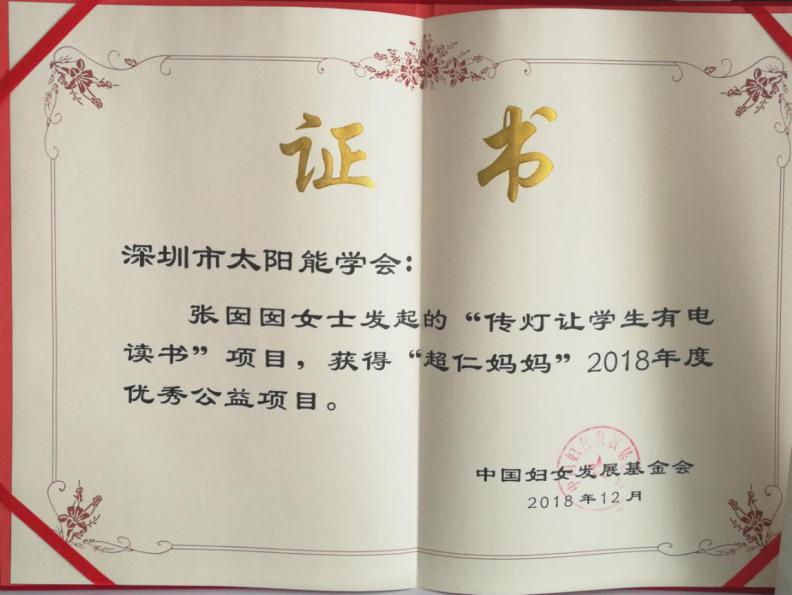 证 书
深圳市太阳能学会：
张囡囡女士发起的“传灯让学生有电
读书”项目，获得“超仁妈妈”2018年度
优秀公益项目。
中国妇女发展基金会
2018年12月
中国妇女发展基金会